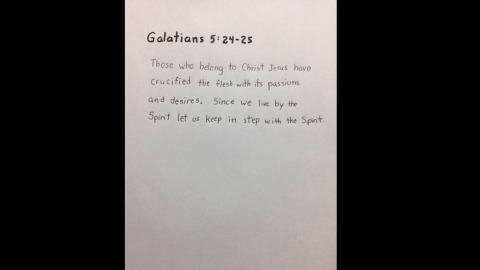 Galatians 5:24-25
Those who belong to Christ Jesus have
crucified the flesh with its passions
and desires. Since we live by the
Spirit let us keep in step with the Spirit.